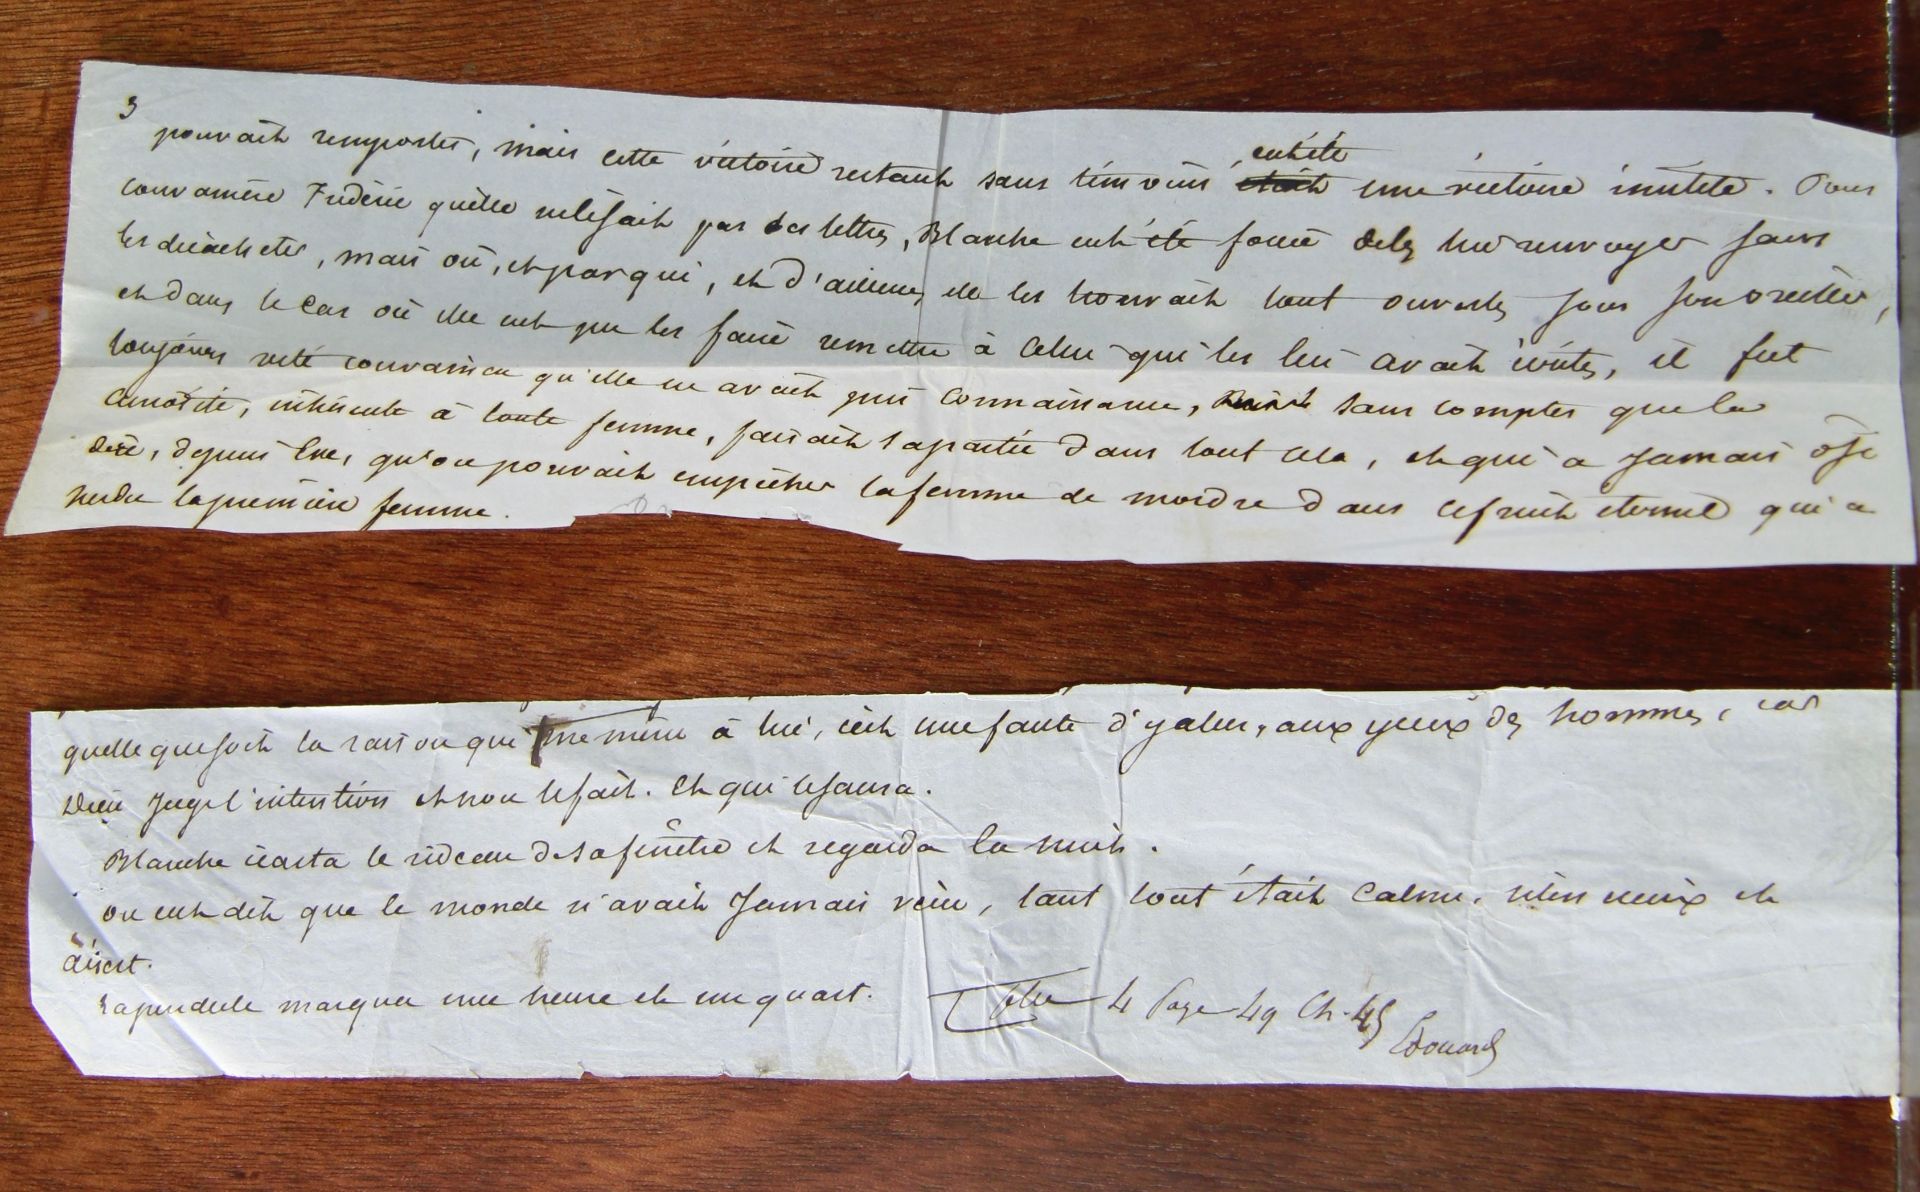 3
pouvait remporter, mais cette victoire restant sans témoins eut été une victoire inutile. Pour
convaincre Frédéric qu'elle ne lisait pas ses lettres, Blanche eut été forcée de les lui renvoyer sans
les décacheter, mais où, et par qui, et d'ailleurs, elle les trouvait tout ouvertes sous son oreiller,
et dans le cas où elle eut pu les faire remettre à celui qui les lui avait écrites, il fut
toujours resté convaincu qu'elle en avait pris connaissance, sans compter que la
curiosité, inhérente à toute femme, faisait sa partie dans tout cela, et qui a jamais osé
dire, depuis Eve, qu'on pouvait empêcher la femme de mordre dans le fruit éternel qui a
perdu la première femme.
quelle que soit la raison qui me mène à lui, c'est une faute d'y aller, aux yeux des hommes, car
Dieu juge l'intention et non le fait. Et qui le saura.
Blanche écarta le rideau de sa fenêtre et regarda la nuit.
on eut dit que le monde n'avait jamais vécu, tant tout était calme, silencieux et
désert.
La pendule marqua une heure et un quart.
4 Page 49 Ch. 45
Edouard